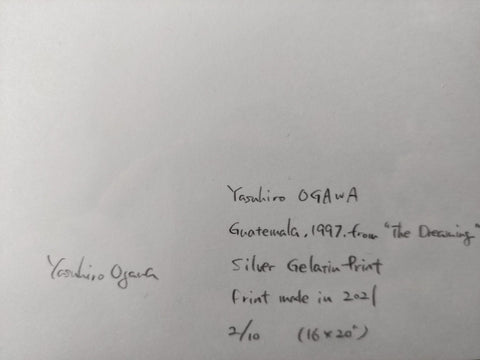 Yasuhiro OGAWA
Guatemala, 1997, from "The Dreaming"
Silver Gelatin Print
Print made in 2021
2/10 (16×20")
Yasuhiro Ogawa